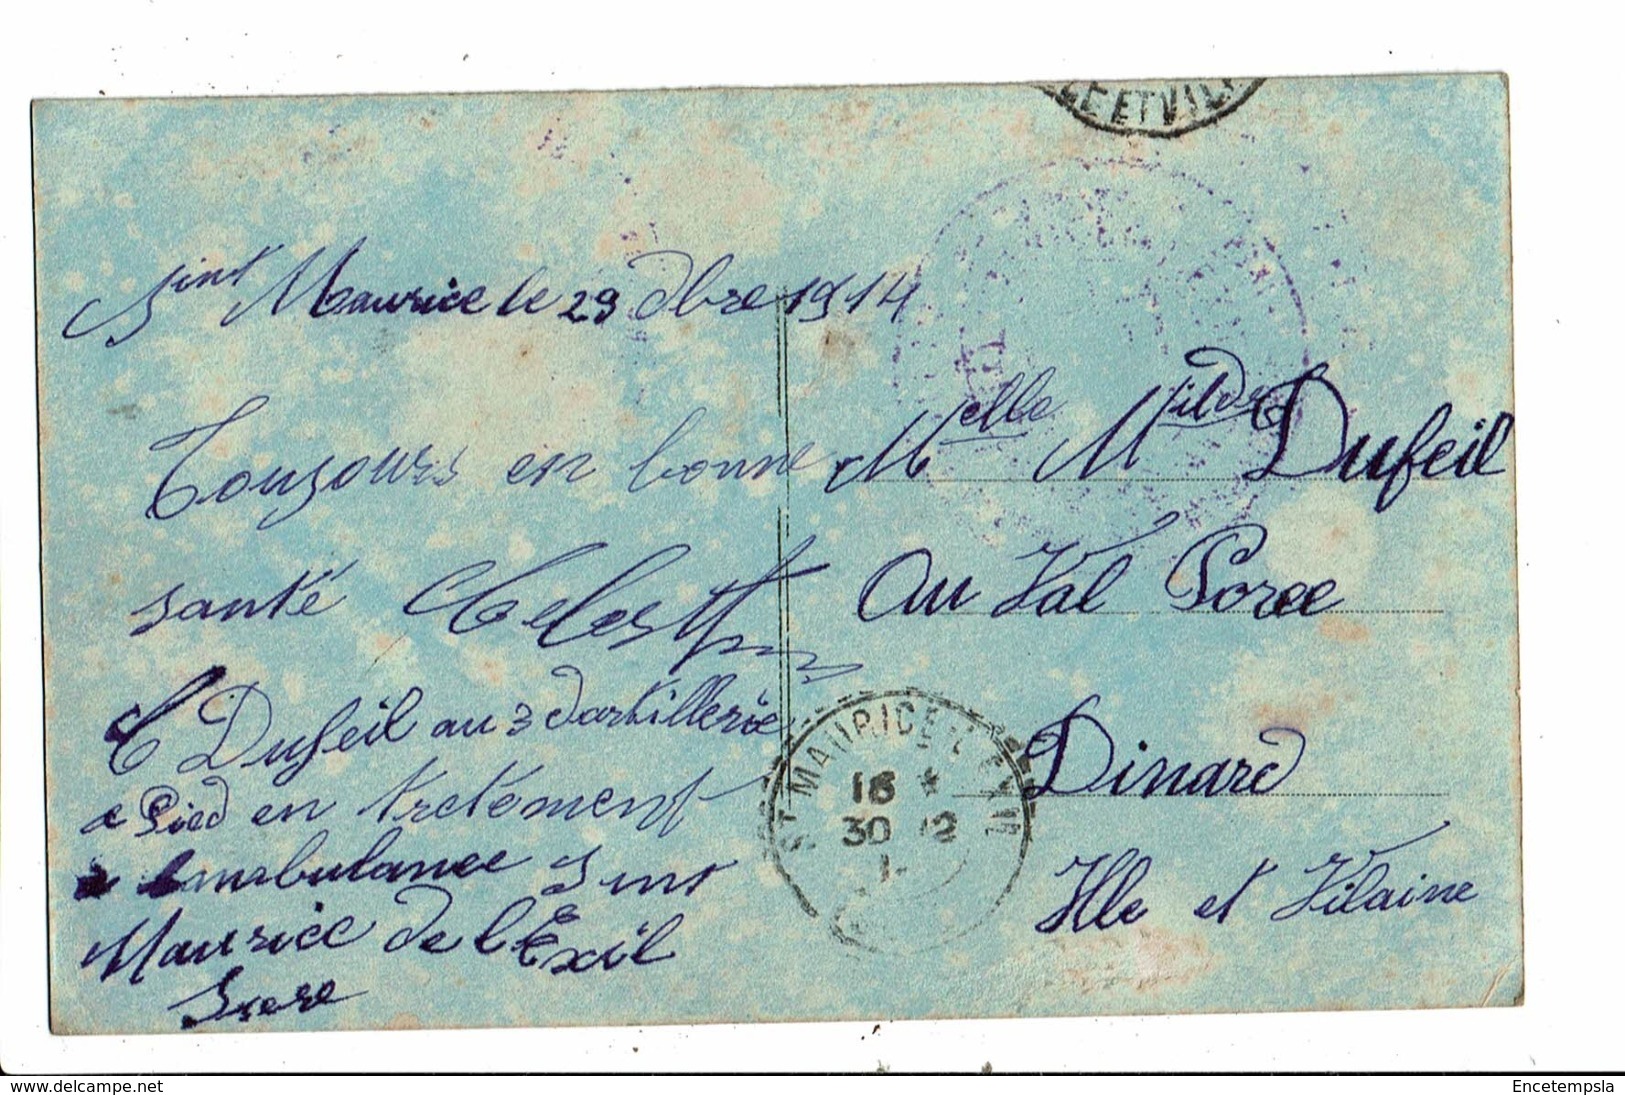 LE ET VIL
Sint Maurice le 29 dbre 1914
Toujours en bonne
santé Celestin
C Dufeil au 3 dartillerie
a Pied en tretement
a lambulance Sint
Maurice de l'Exil
Isere
Melle Milde Dufeil
Au Val Poree
Dinard
Ille et Vilaine
ST MAURICE-L'EXIL
16 *
30 12
delcampe.net
Encetempsla